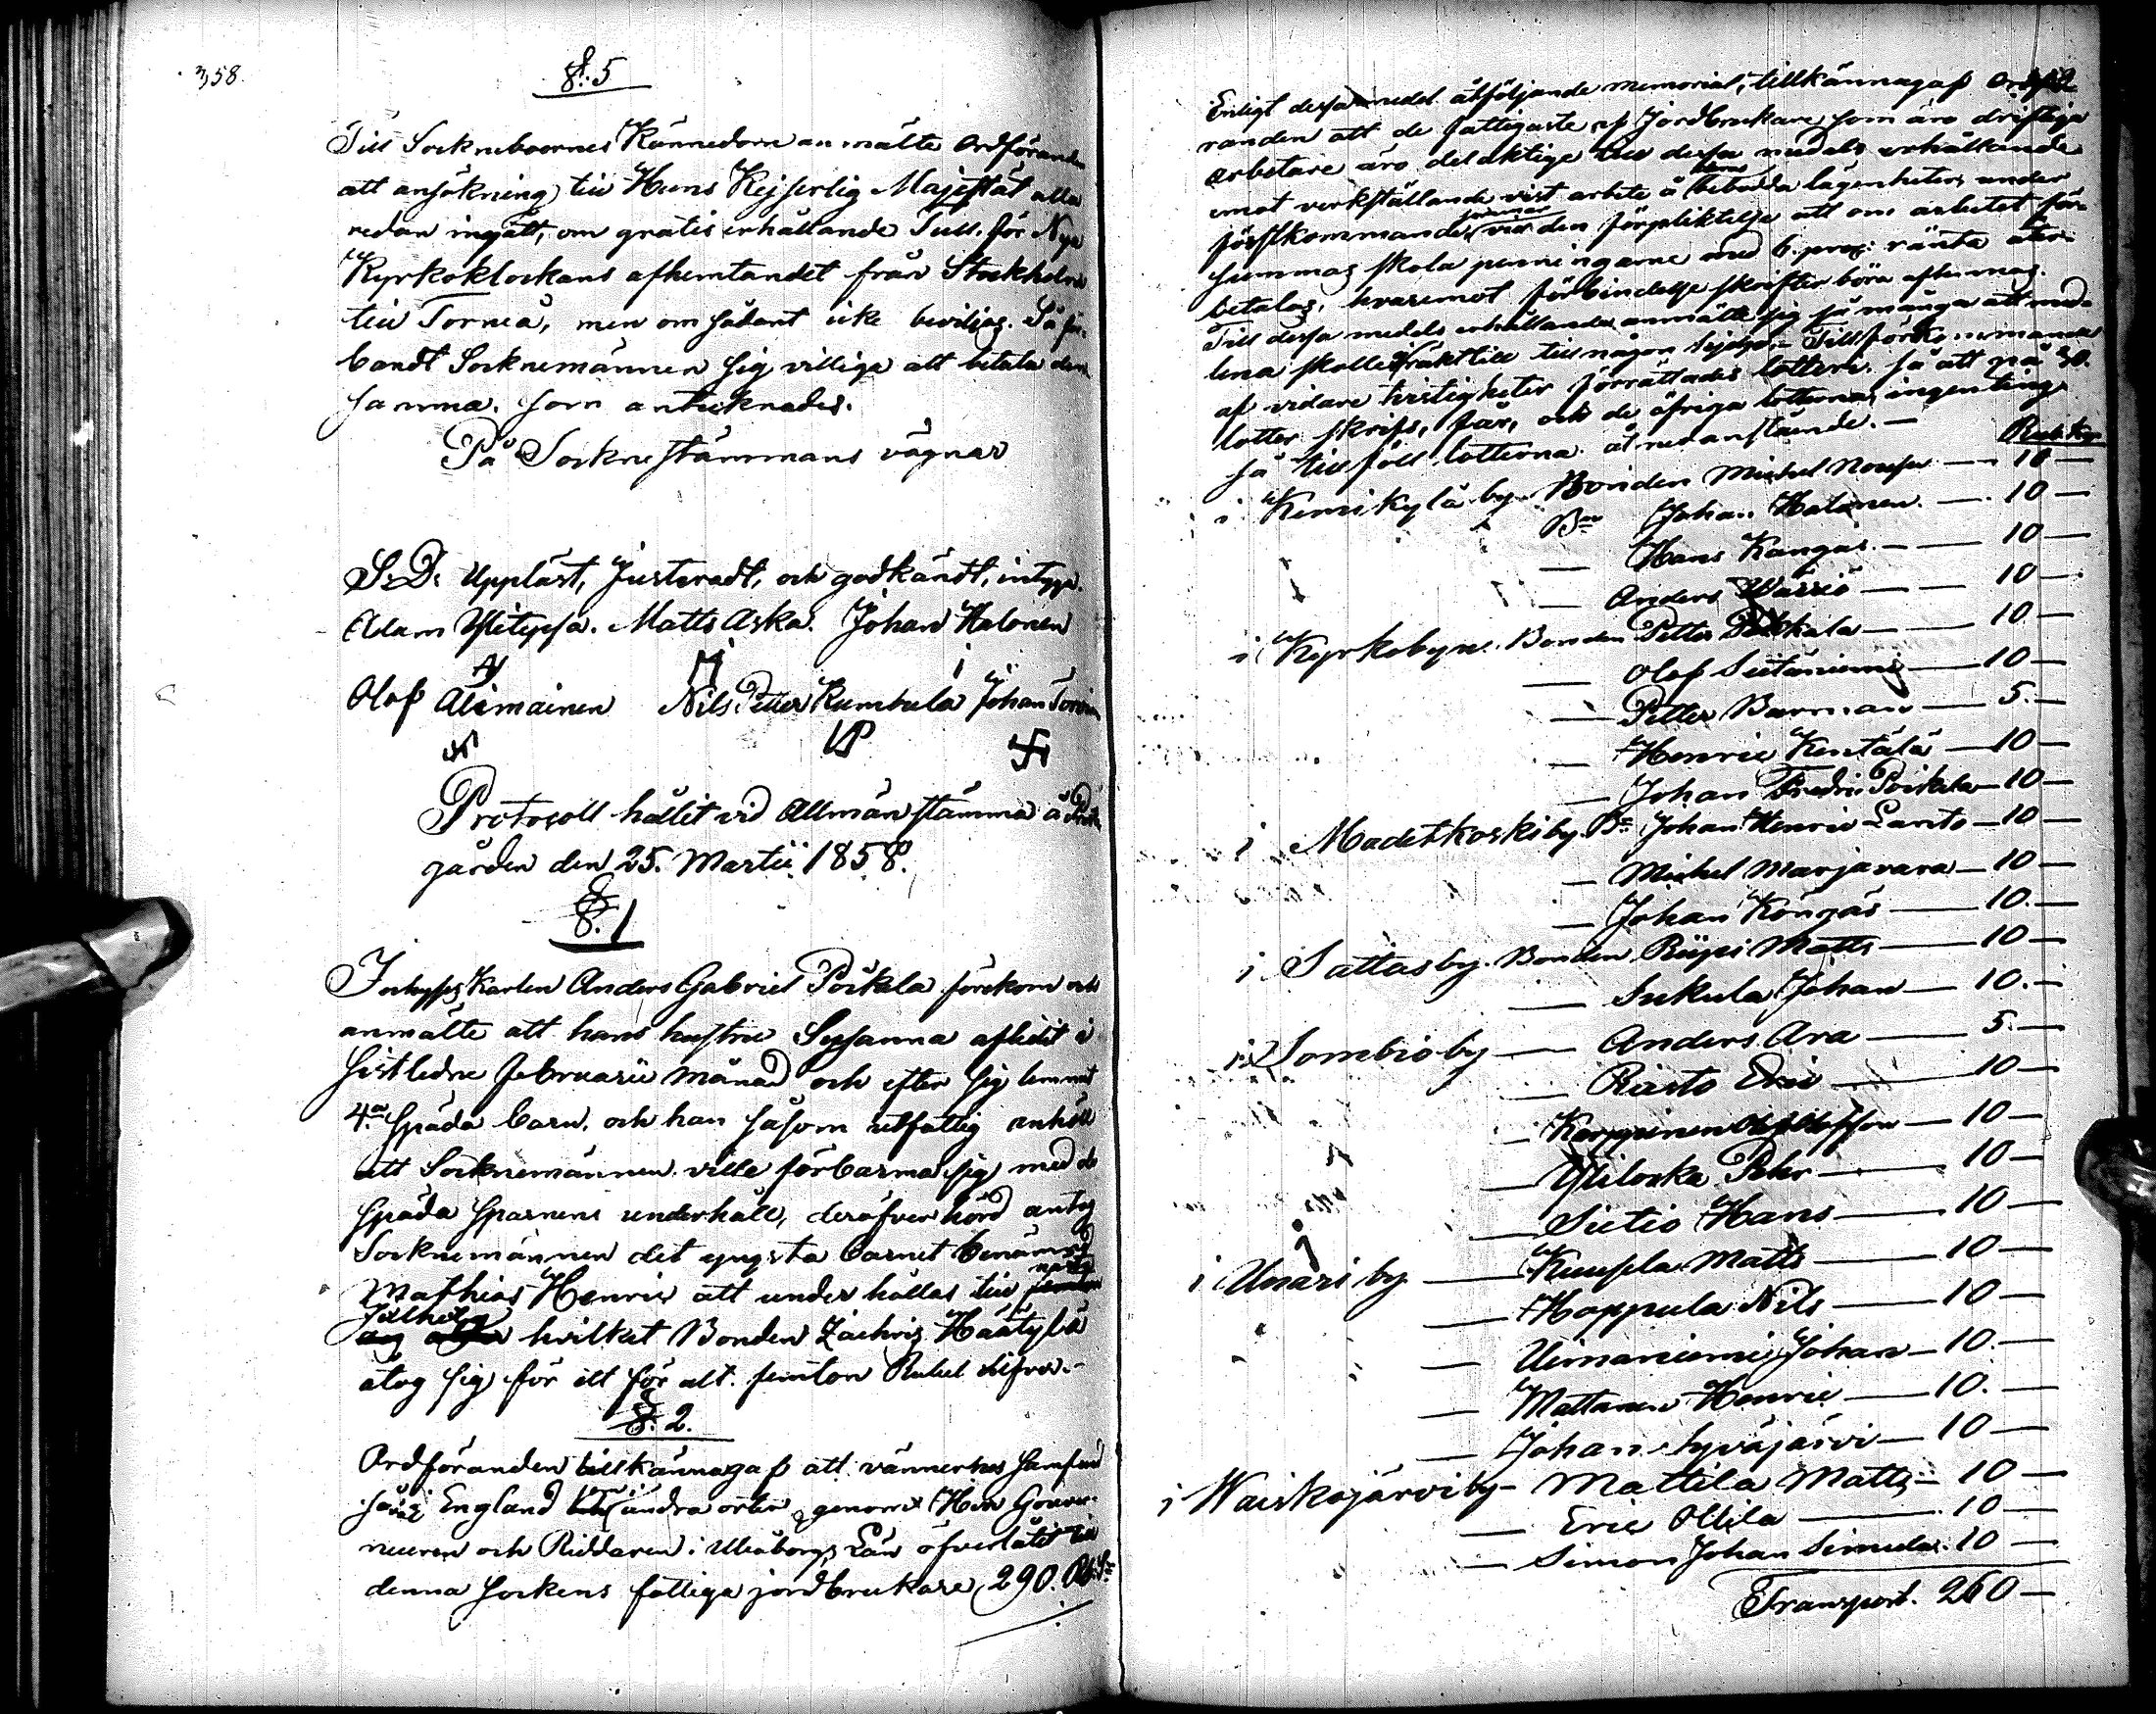 358.
§. 5
Till Sockneboernes Kännedom anmälte Ordföranden
att ansökning till Hans Kejserlig Majestät alla
redan ingått, om gratis erhållande Tull för Nya
Kyrkoklockans afhemtandet från Stockholm
till Torneå, men om sådant icke beviljas. Så för-
bandt Socknemännen sig villiga att betala den
samma. som antecknades.
På Sockne stämmans vägnar
S. D. Uppläst, Justeradt, och godkändt, intyga
Adam Yliteppsa. Matts Aska. Johan Halonen
Olof Alamainen Nils Petter Kumbula Johan
Protocoll hållit vid Allmän stämma å
gården den 25. Martii 1858.
§. 1
Inhyses Karlen Anders Gabriel Poikela förekom och
anmälte att hans hustru Susanna aflidit i
sistledne Februarii månad och efter sig lemnat
4.a späda barn. och han såsom utfattig anhöll
att Socknemännen ville förbarma sig med de
späda barnens underhåll, deröfver hörd antog
Socknemännen det yngsta barnet benämnd
Mathias Henric att underhållas till nästa
Julhelg hvilket Bonden Zachris Häätylä
åtog sig för ett för alt. femton Rubel silfver.
§. 2.
Ordföranden tillkännagaf att vännernes samfund
i England andra orter genom Herr Gouver-
neuren och Riddaren i Uleåborgs Län öfverlåtit till
denna sockens fattiga jordbrukare 290. Rb. Sr
Enligt dessa medel åtföljande memorial, tillkännagaf Ordfö-
randen att de fattigaste af Jordbrukare som äro driftiga
arbetare äro delaktige till dessa medels erhållande
emot verkställande vist arbete å bebodda lägenheter under
förstkommande vid den förpliktelse att om arbetet för-
summas skola penningarne med 6. proc: ränta åter-
betalas, hvaremot förbindelse skrifter böra afhemnas.
Till dessa medels erhållande anmälte sig så många att med-
lena skulle till någon Till förekommande
af vidare tvistigheter förrättades lotteri. så att på 30.
lotter skrifs, får, och de öfriga lotterna ingenting.
så till föll lotterna åt nedanstående. —
Rub. Kop
i Kemikylä by. Bonden Michel — 10 —
Bn Johan Halonen. — 10 —
— Hans Kangas. — 10 —
— Anders Warrio — 10 —
i Kyrkobyn. Bonden Petter Pokkala — 10 —
— Olof Siitaniemi — 10 —
— Petter Burman — 5. —
— Henric Kentälä — 10 —
— Johan Fredric Poikela — 10 —
i Madetkoski by. Bn Johan Henric Lanto — 10 —
— Michel Marjavara — 10 —
— Johan Köngäs — 10. —
i Sattas by. Bonden Riipi Matts — 10 —
— Sukula Johan — 10. —
i Sombio by — Anders Ara — 5. —
— Riasto Eric — 10 —
— Karppinen Olof Olofsson — 10 —
— Yliloska Pehr — 10 —
— Sietio Hans — 10 —
i Unari by — Kuusela Matts — 10 —
— Hoppula Nils — 10 —
— Uimaniemi Johan — 10. —
— Mattanen Henric — 10. —
— Johan hyväjärvi — 10 —
i Waiskojärvi by — Mattila Matts — 10 —
— Eric Ollila — 10 —
— Simon Johan Simula. 10 —
Transport. 260 —